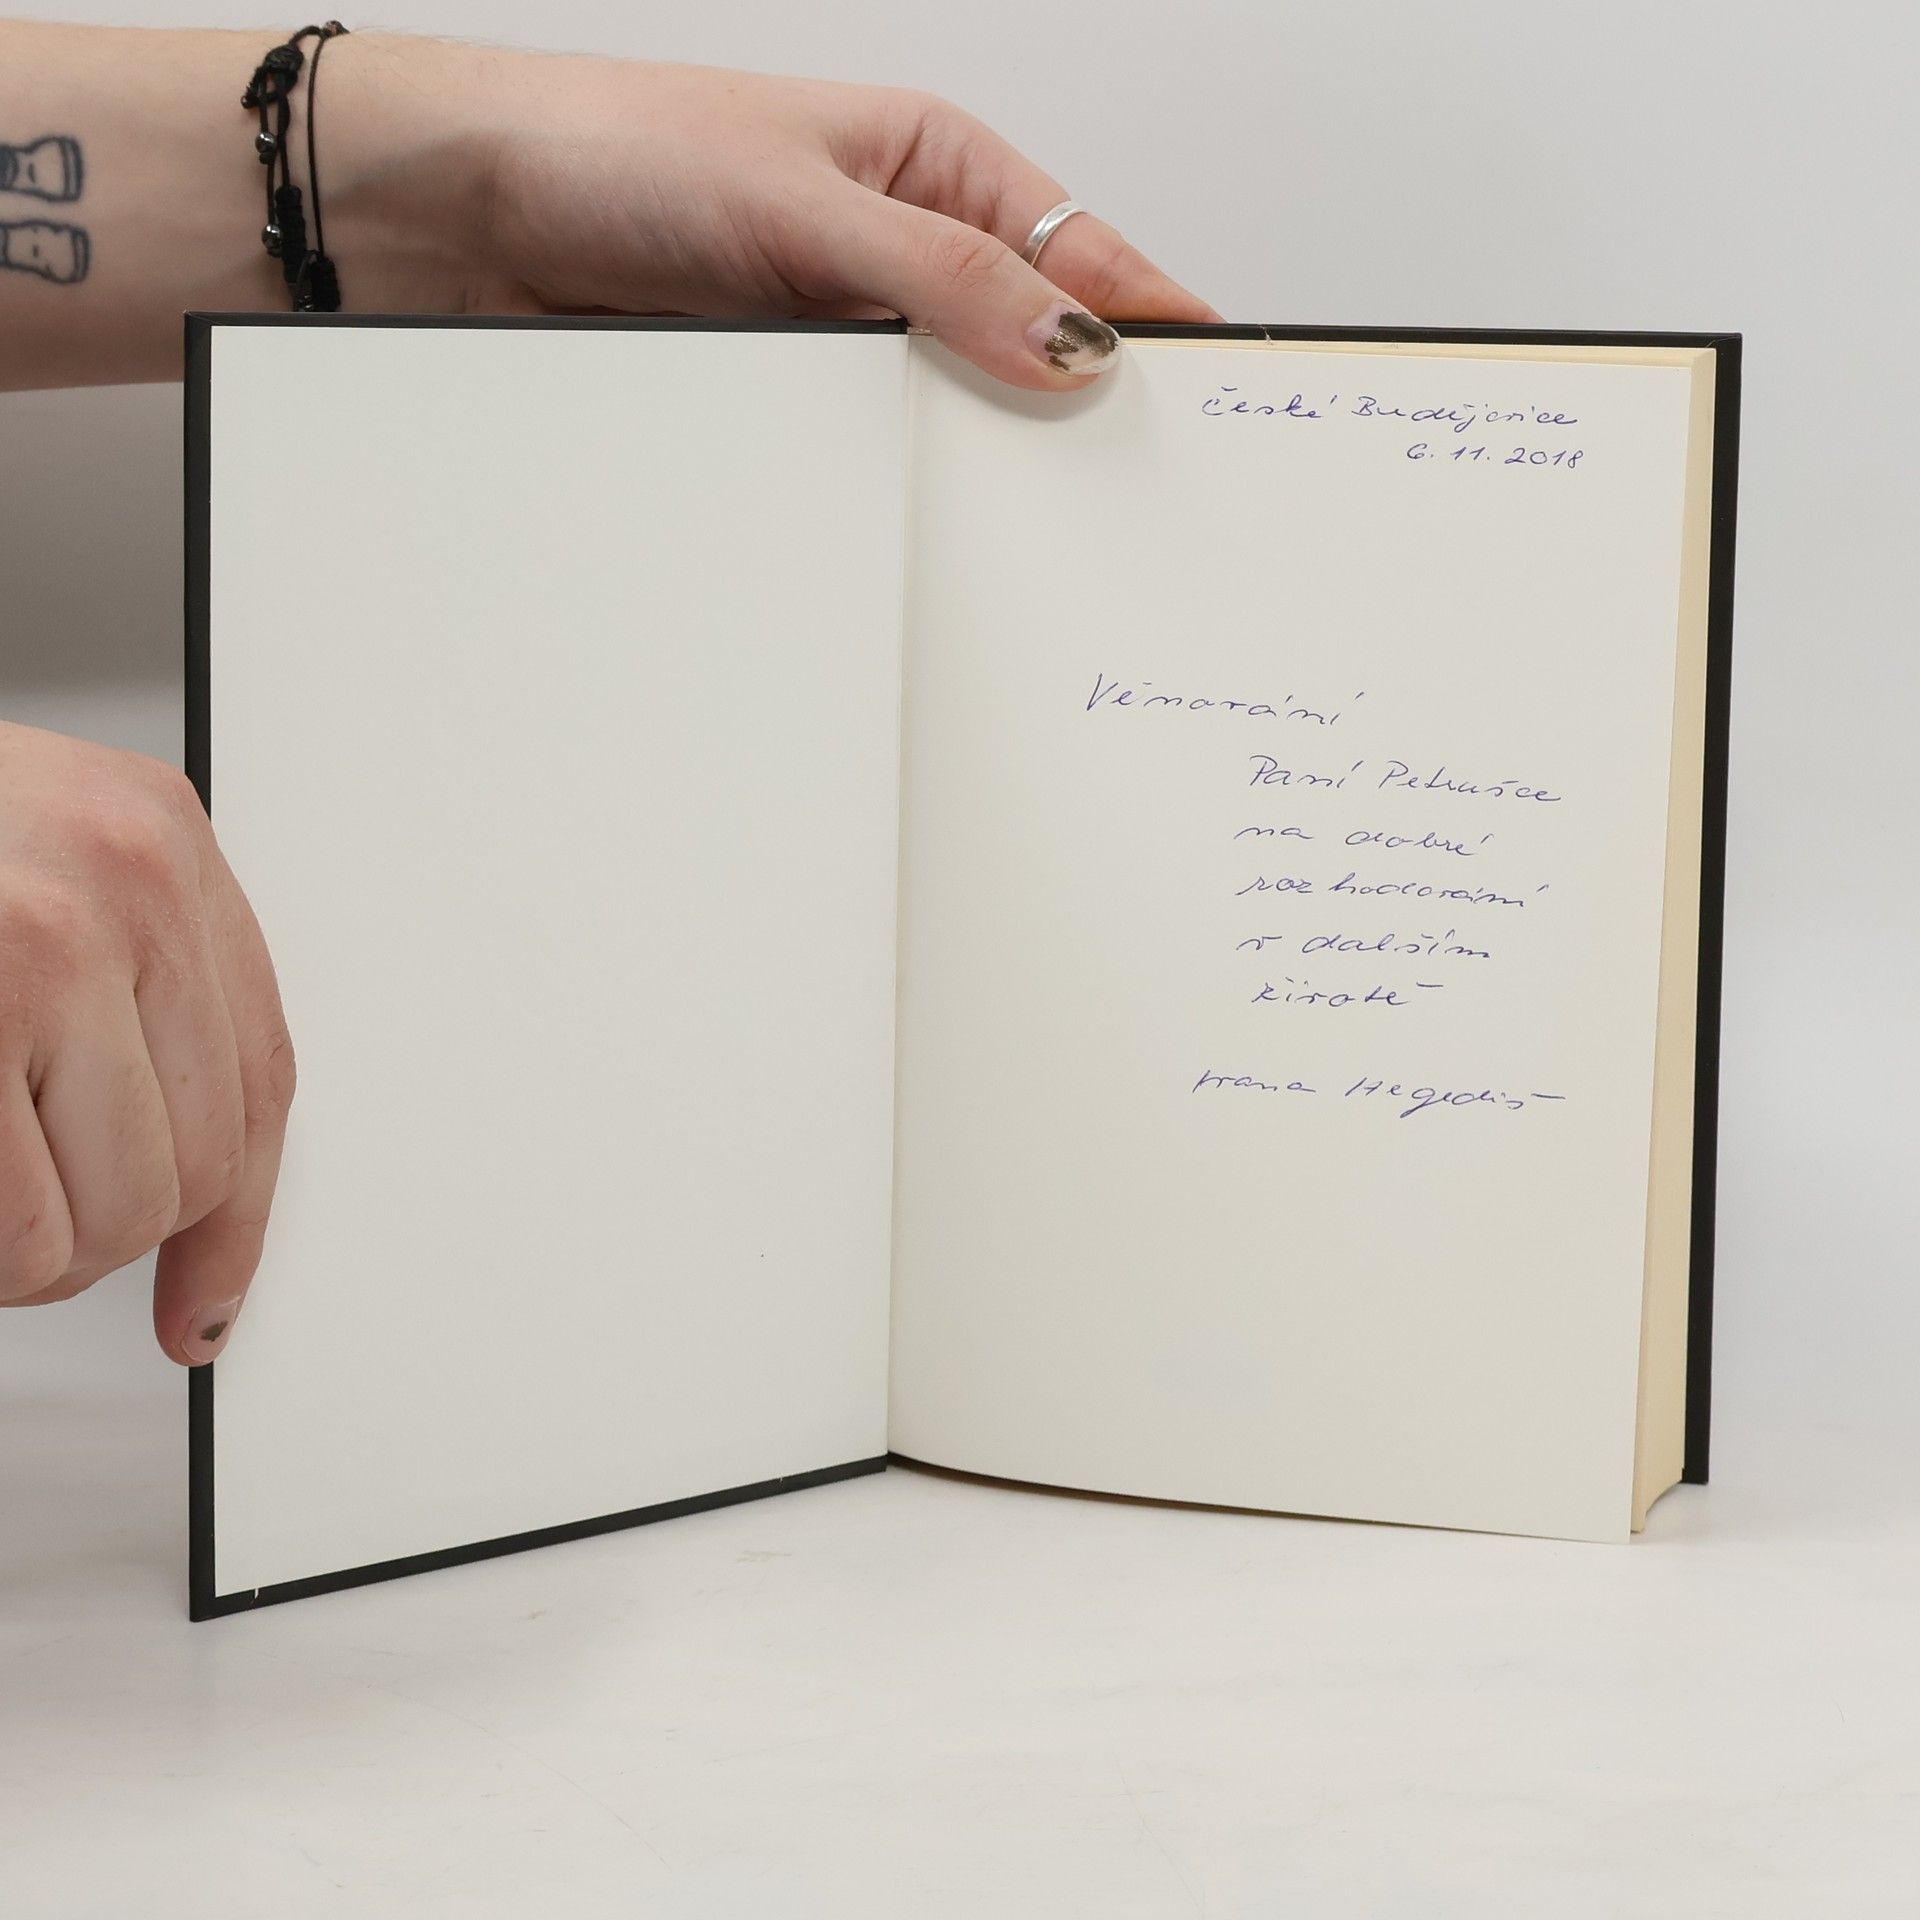 České Budějovice
6. 11. 2018
Věnování
Paní Petrušce
na dobré
rozhodování
v dalším
životě
Hegediš